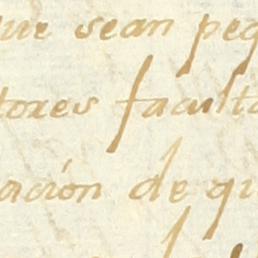 que sean peq
tores faculta
ación de qu